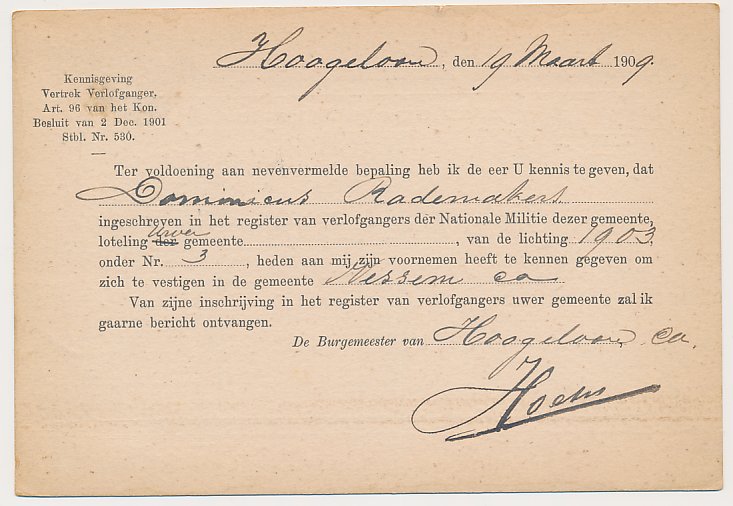 Hoogeloon, den 19 Maart 1909.
Kennisgeving
Vertrek Verlofganger,
Art. 96 van het Kon.
Besluit van 2 Dec. 1901
Stbl. Nr. 530.
Ter voldoening aan nevenvermelde bepaling heb ik de eer U kennis te geven, dat
Dominicus Rademakers
ingeschreven in het register van verlofgangers der Nationale Militie dezer gemeente,
Uwer
loteling der gemeente, van de lichting 1903
onder Nr. 3, heden aan mij zijn voornemen heeft te kennen gegeven om
zich te vestigen in de gemeente Wessem ca
Van zijne inschrijving in het register van verlofgangers uwer gemeente zal ik
gaarne bericht ontvangen.
De Burgemeester van Hoogeloon ca.